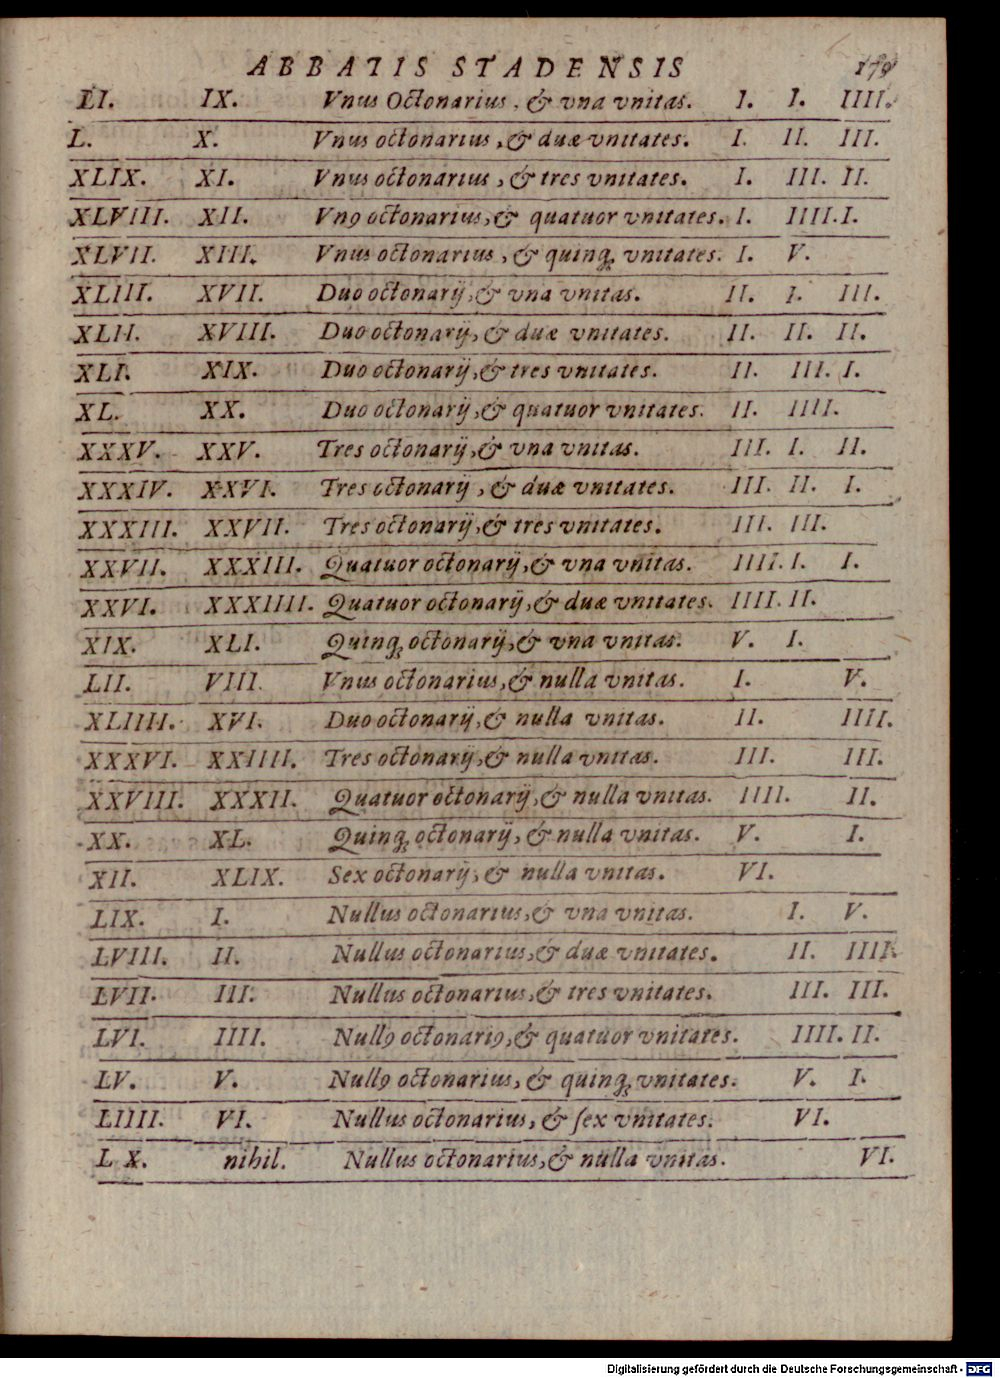 ABBATIS STADENSIS 179
LI. IX. Vnus Octonarius, & vna vnitas. I. I. IIII.
L. X. Vnus octonarius, & duæ vnitates. I. II. III.
XLIX. XI. Vnus octonarius, & tres vnitates. I. III. II.
XLVIII. XII. Vn9 octonarius, & quatuor vnitates. I. IIII. I.
XLVII. XIII. Vnus octonarius, & quinq; vnitates. I. V.
XLIII. XVII. Duo octonarij, & vna vnitas. II. I. III.
XLII. XVIII. Duo octonarij, & duæ vnitates. II. II. II.
XLI. XIX. Duo octonarij, & tres vnitates. II. III. I.
XL. XX. Duo octonarij, & quatuor vnitates. II. IIII.
XXXV. XXV. Tres octonarij, & vna vnitas. III. I. II.
XXXIV. XXVI. Tres octonarij, & duæ vnitates. III. II. I.
XXXIII. XXVII. Tres octonarij, & tres vnitates. III. III.
XXVII. XXXIII. Quatuor octonarij, & vna vnitas. IIII. I. I.
XXVI. XXXIIII. Quatuor octonarij, & duæ vnitates. IIII. II.
XIX. XLI. Quinq; octonarij, & vna vnitas. V. I.
LII. VIII. Vnus octonarius, & nulla vnitas. I. V.
XLIIII. XVI. Duo octonarij, & nulla vnitas. II. IIII.
XXXVI. XXIIII. Tres octonarij, & nulla vnitas. III. III.
XXVIII. XXXII. Quatuor octonarij, & nulla vnitas. IIII. II.
XX. XL. Quinq; octonarij, & nulla vnitas. V. I.
XII. XLIX. Sex octonarij, & nulla vnitas. VI.
LIX. I. Nullus octonarius, & vna vnitas. I. V.
LVIII. II. Nullus octonarius, & duæ vnitates. II. IIII.
LVII. III. Nullus octonarius, & tres vnitates. III. III.
LVI. IIII. Null9 octonari9, & quatuor vnitates. IIII. II.
LV. V. Null9 octonarius, & quinq; vnitates. V. I.
LIIII. VI. Nullus octonarius, & ſex vnitates. VI.
LX. nihil. Nullus octonarius, & nulla vnitas. VI.
Digitalisierung gefördert durch die Deutsche Forschungsgemeinschaft - DFG